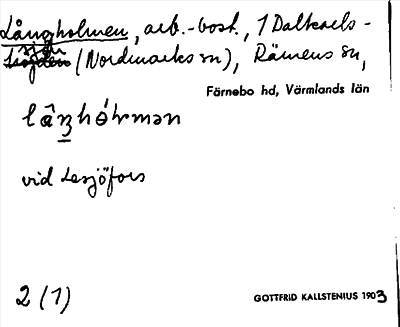 Långholmen, arb.-bost., 1 Dalkarls-
sjön (Nordmarks sn), Rämens sn,
Färnebo hd, Värmlands län
vid Lesjöfors
2 (1)
GOTTFRID KALLSTENIUS 1903